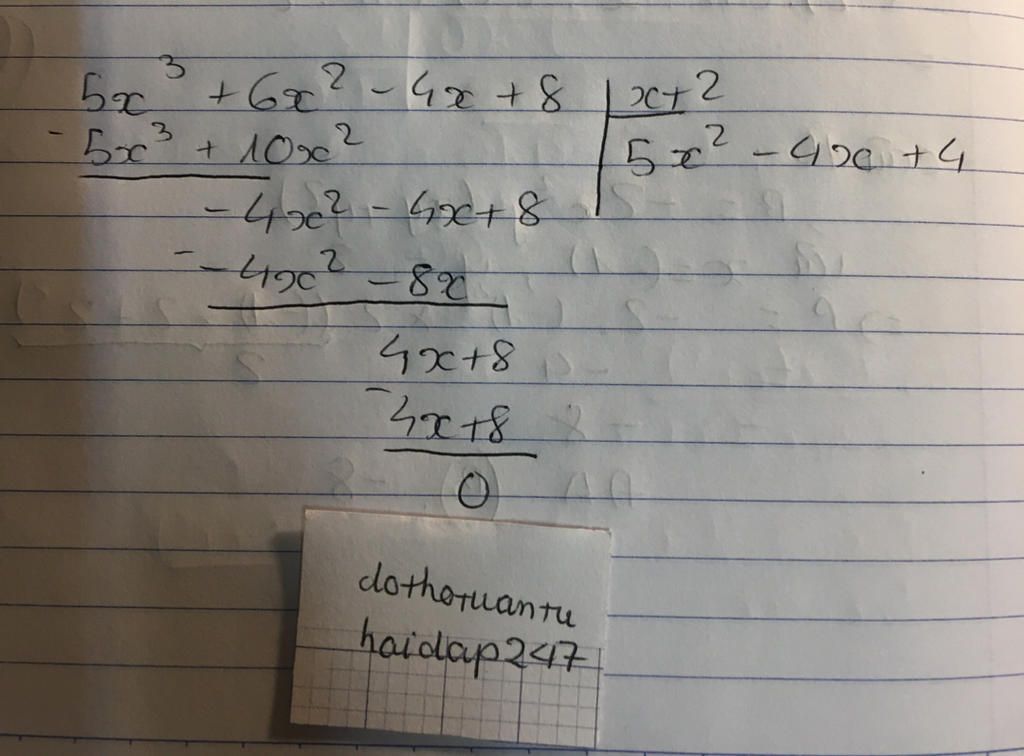 5x³ + 6x² - 4x + 8 | x + 2
- 5x³ + 10x² | 5x² - 4x + 4
- 4x² - 4x + 8
- - 4x² - 8x
4x + 8
- 4x + 8
0
dothotuantu
hoidap247